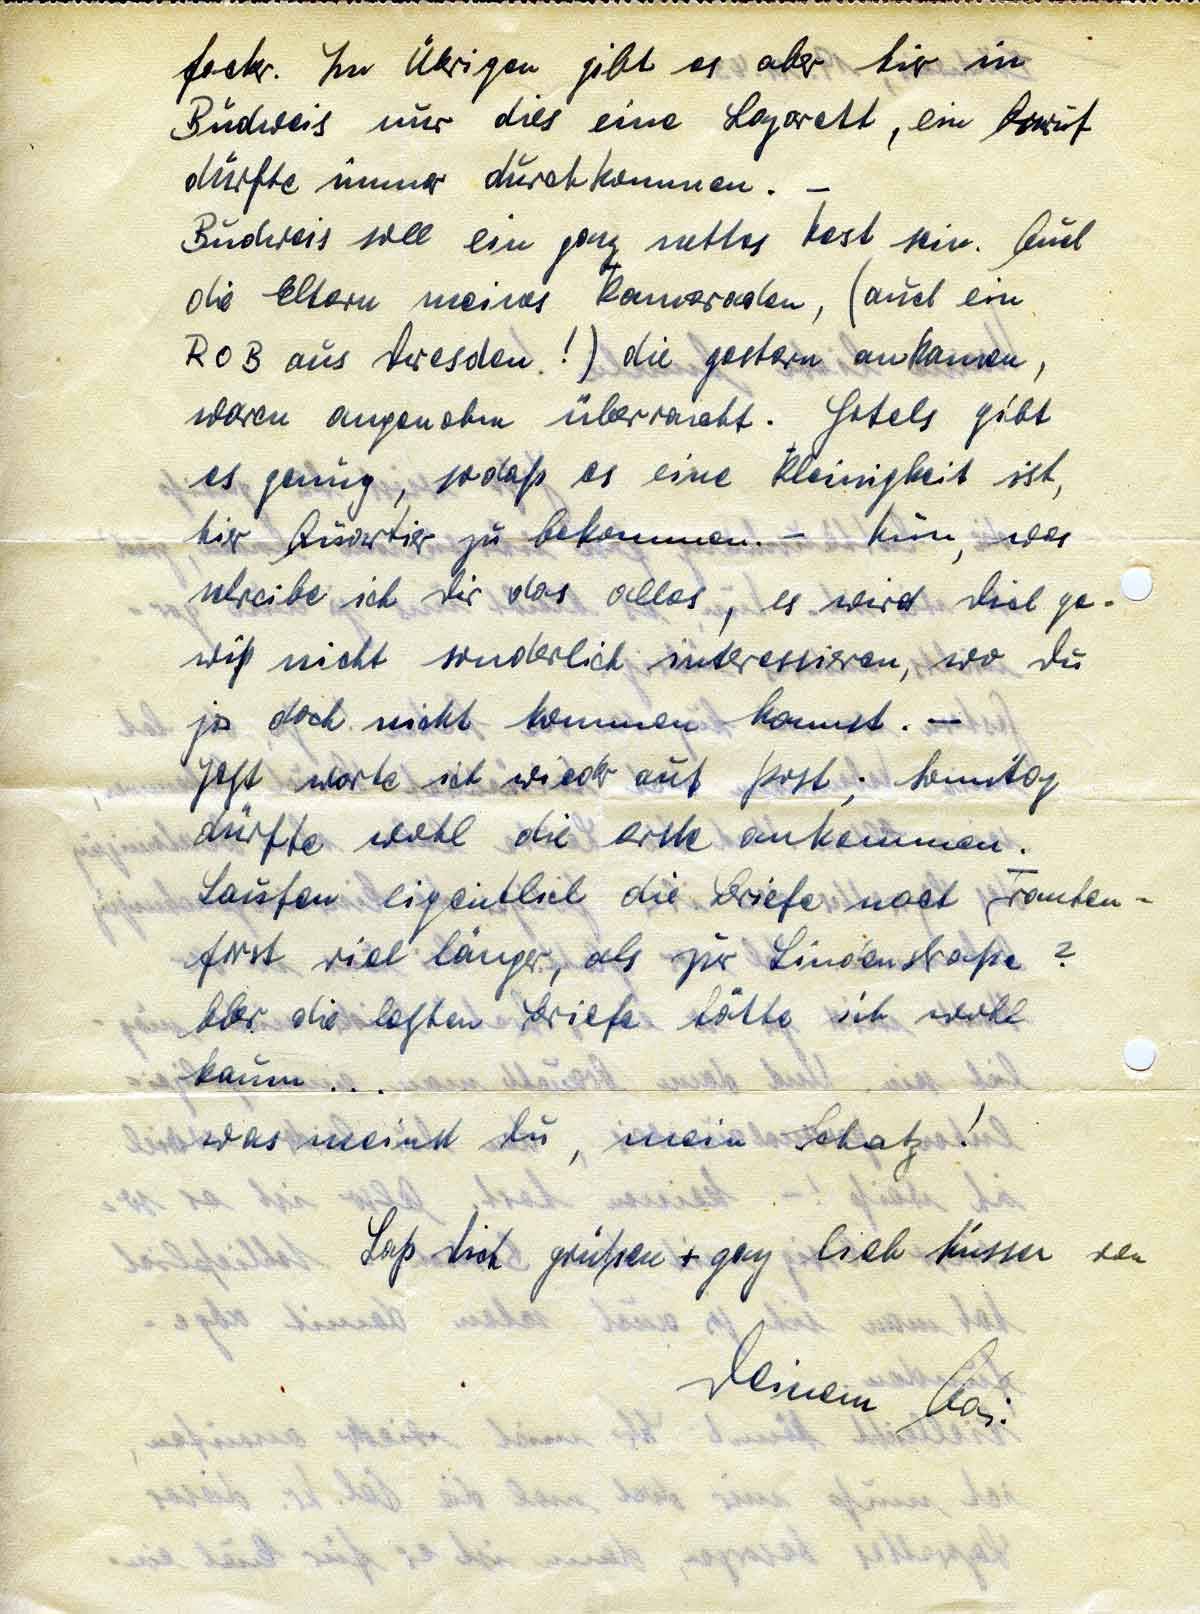 facher. Im Übrigen gibt es aber hier in
Budweis nur dies eine Lazarett, ein Anruf
dürfte immer durchkommen. –
Budweis soll ein ganz nettes Nest sein. Auch
die Eltern meines Kameraden, (auch ein
ROB aus Dresden!) die gestern ankamen,
waren angenehm überrascht. Hotels gibt
es genug, sodaß es eine Kleinigkeit ist,
hier Quartier zu bekommen. – Nun, was
schreibe ich Dir das alles, es wird Dich ge-
wiß nicht sonderlich interessieren, wo Du
ja doch nicht kommen kannst. –
Jetzt warte ich wieder auf Post; Sonntag
dürfte wohl die erste ankommen.
Laufen eigentlich die Briefe nach Frauten-
forst viel länger, als zur Lindenstraße?
Aber die letzten Briefe hätte ich wohl
kaum...
was meinst Du, mein Schatz!
Laß Dich grüßen + ganz lieb küssen von
Deinem